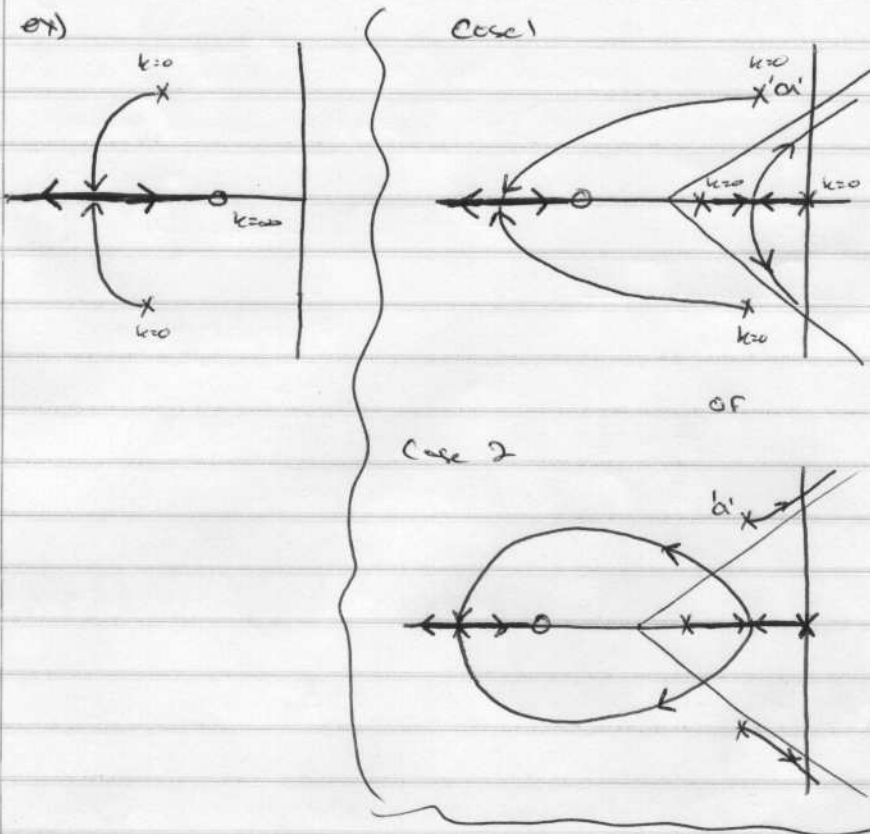 ex)
k=0
k=∞
k=0
Case 1
k=0
'a'
k=0
k=0
k=0
or
Case 2
'a'